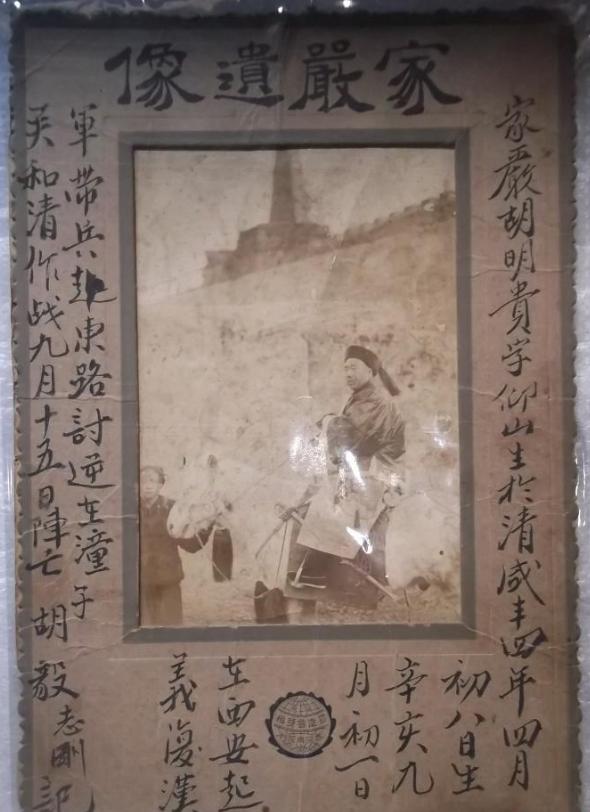 家嚴遺像
家嚴胡明貴字仰山生於清咸丰四年四月
初八日生
辛亥九
月初一日
在西安起
義復漢
軍帶兵赴東路討逆在潼
关和清作战九月十五日陣亡 胡毅志刚記